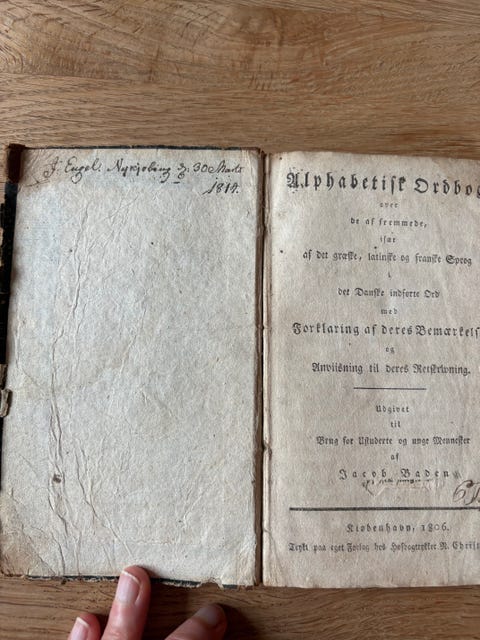 J. Engel. Nykjøbing d. 30 Marts
1814.
Alphabetisk Ordbog
over
de af fremmede,
især
af det græske, latinske og franske Sprog
i
det Danske indførte Ord
med
Forklaring af deres Bemærkels
og
Anviisning til deres Retskrivning.
Udgivet
til
Brug for Ustuderte og unge Mennesker
af
Jacob Baden
Kiøbenhavn, 1806.
Trykt paa eget Forlag hos Hofbogtrykker N. Christ